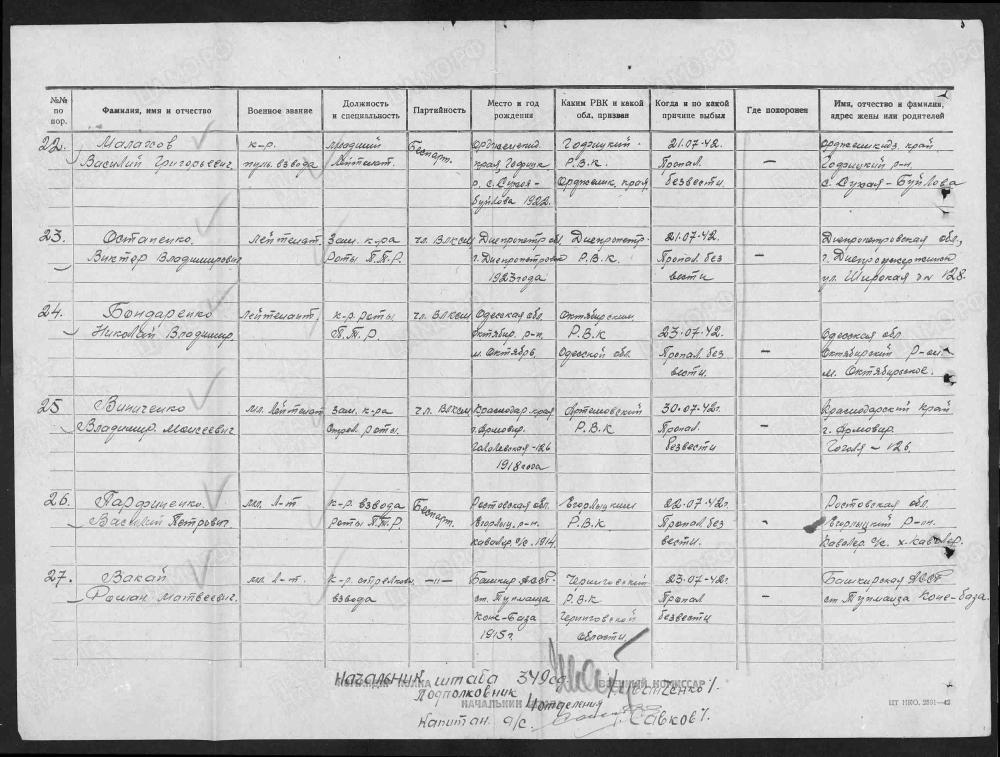 №№ по пор. Фамилия, имя и отчество Военное звание Должность и специальность Партийность Место и год рождения Каким РВК и какой обл. призван Когда и по какой причине выбыл Где похоронен Имя, отчество и фамилия, адрес жены или родителей
22. Малахов к-р. младший Беспарт. Орджоникид. Годзицкий 21.07.42. орджоникидз. край
Василий Григорьевич. пульвзвода лейтенат. край, Р.В.К. Пропал — р-н.
р. с. Сухая- Орджоник. края безвести. с. Сухая-Буйвола
Буйвола 1922.
23. Остапенко. Лейтенат. Зам. к-ра чл. Влксм Днепропетр. обл. Днепропетр. 21.07.42. Днепропетровская обл,
Виктор Владимирович роты П.Т.Р. г. Днепропетровск Р.В.К. Пропал. без — г. Днепродзержинск
1923 года вести ул. Широкая дн № 128.
24. Бондаренко Лейтенант. к-р. роты чл. Влксм Одесская обл. Октябрьским
Николай Владимир. П.Т.Р. Октябир. р-н. Р.В.К 23.07.42. Одесская обл
м. Октябрь. Одесской обл. Пропал. без — Октябирский р-он.
вести. м. Октябирьское.
25 Виниченко мл. Лейтенат Зам. к-ра чл. Влксм Краснодар. края Артемовский 30.07.42г. Краснодарский край
Владимир. Моисеевич. Стрел. роты. г. Армовир. Р.В.К Пропал — г. Армовир.
-126 безвести Гоголя - 126.
1918 года
26. Парфиненко. мл. л-т к-р. взвода Беспарт. Ростовская обл. Егорлыцким 22.07.42г. Ростовская обл.
Василий Петрович. роты П.Т.Р. Егорлыц. р-н. Р.В.К Пропал. без — Егорлыцкий р-он.
Кавалер. с/с. 1914. вести. Кавалер. с/с. х. Кавалер.
27. Вакай мл. л-т. к-р. стрелков. —"— Башкир АССР Черниговский 23.07.42г. Башкирская АССР
Роман Матвеевич. взвода ст. Туймаиза Р.В.К Пропал — ст. Туймаиза Коне-база.
Коне-База Черниговской безвести
1915г области.
КОМАНДИР ПОЛКА ВОЕННЫЙ КОМИССАР
Начальник штаба 349сд.
Подполковник
НАЧАЛЬНИК
4 отделения
Капитан а/с. /Савков/.
ЦТ НКО. 2591—42